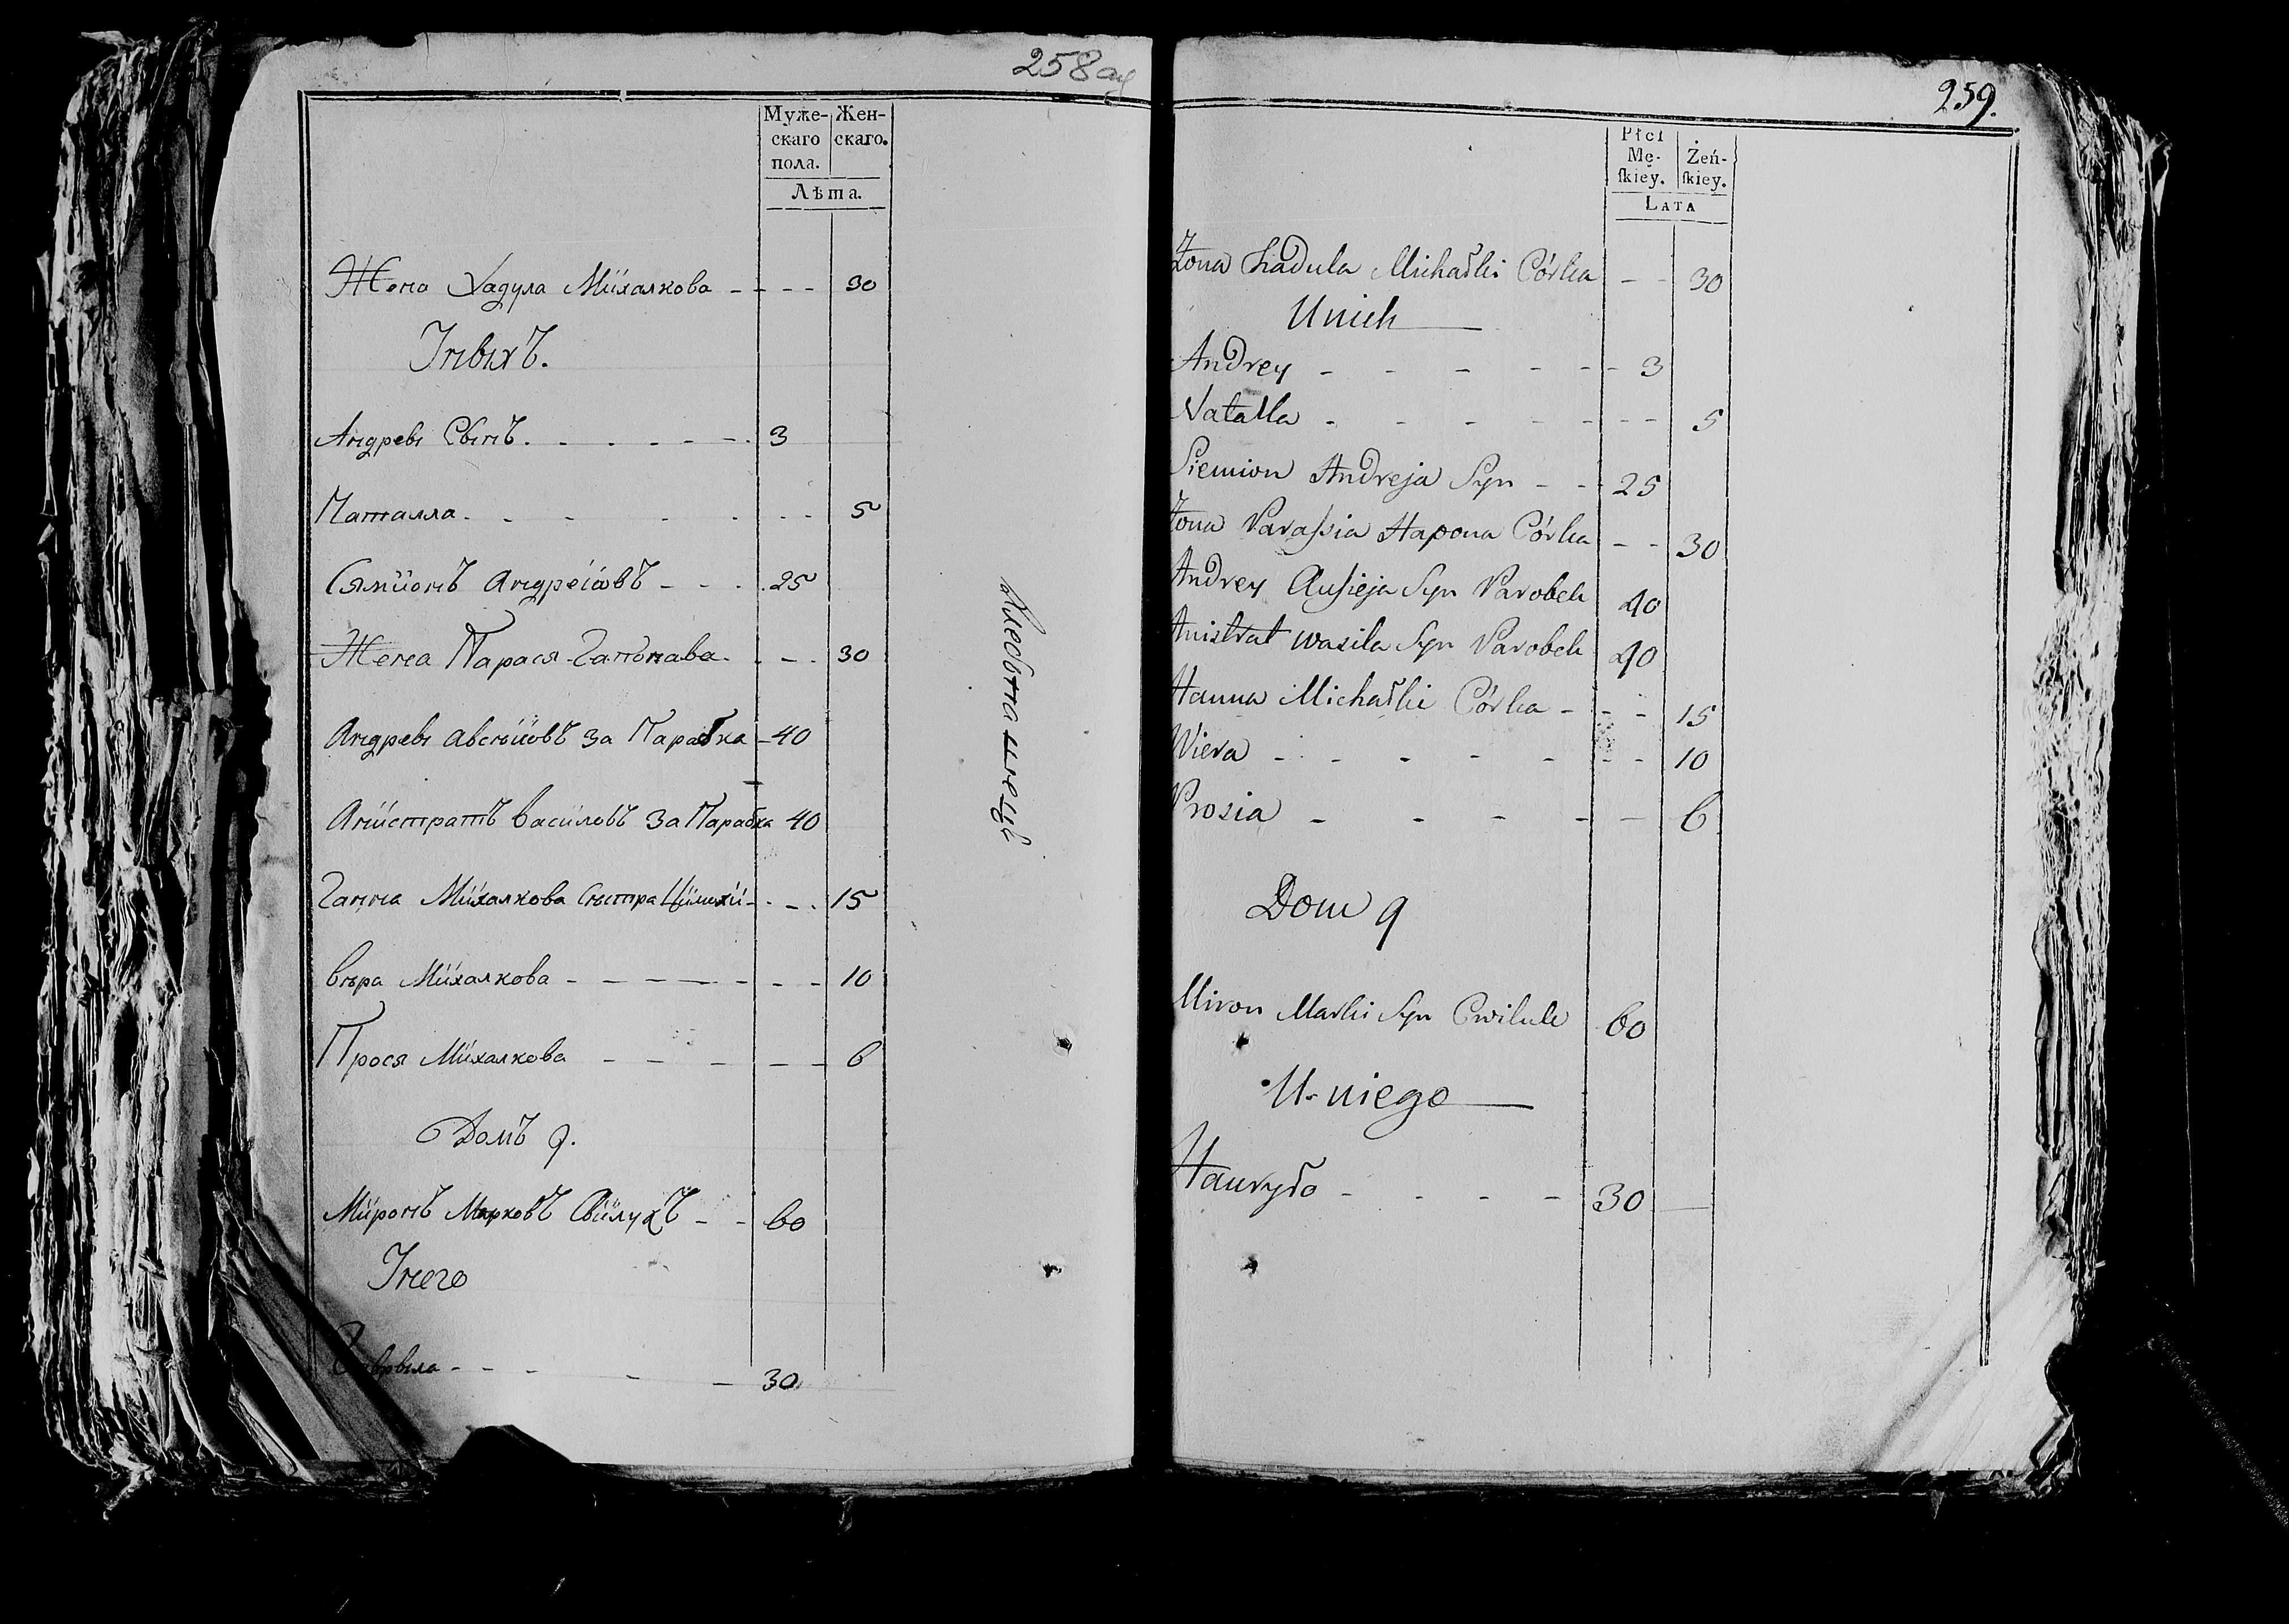 258 об
Муже- Жен-
скаго скаго.
пола.
Лѣта.
Жена Хадула Міхалкова - - - - 30
Інвіхъ.
Андреві Сынъ. - - - - - 3
Наталла. - - - - - - 5
Сяміонъ Андреіовъ - - - 25
Жена Парася Гапонава. - - - 30
Андреві Авсѣіовъ за Парабка - 40
Аністратъ Васіловъ За Парабка 40
Ганна Міхалкова Сѣстра - - - 15
Вѣра Міхалкова - - - - - - - 10
Прося Міхалкова - - - - - 6
Домъ 9.
Міронъ Марковъ Свілухъ - - 60
Інего
Гаврыла - - - - - 30
259.
Płci
Mę- Żeń-
ſkiey. ſkiey.
LATA
Żona Hadula Michałki Córka - - 30
Unich
Andrey - - - - - - 3
Natalla - - - - - - - 5
Siemion Andreja Syn - - 25
Żona Paraſsia Hapona Córka - - 30
Andrey Auſieja Syn Parobek 40
Anistrat Wasila Syn Parobek 40
Hanna Michałki Córka - - - 15
Wiera - - - - - - - 10
Prosia - - - - - 6
Dom 9
Miron Marki Syn Cwiluk 60
U niego
Hauryło - - - - 30